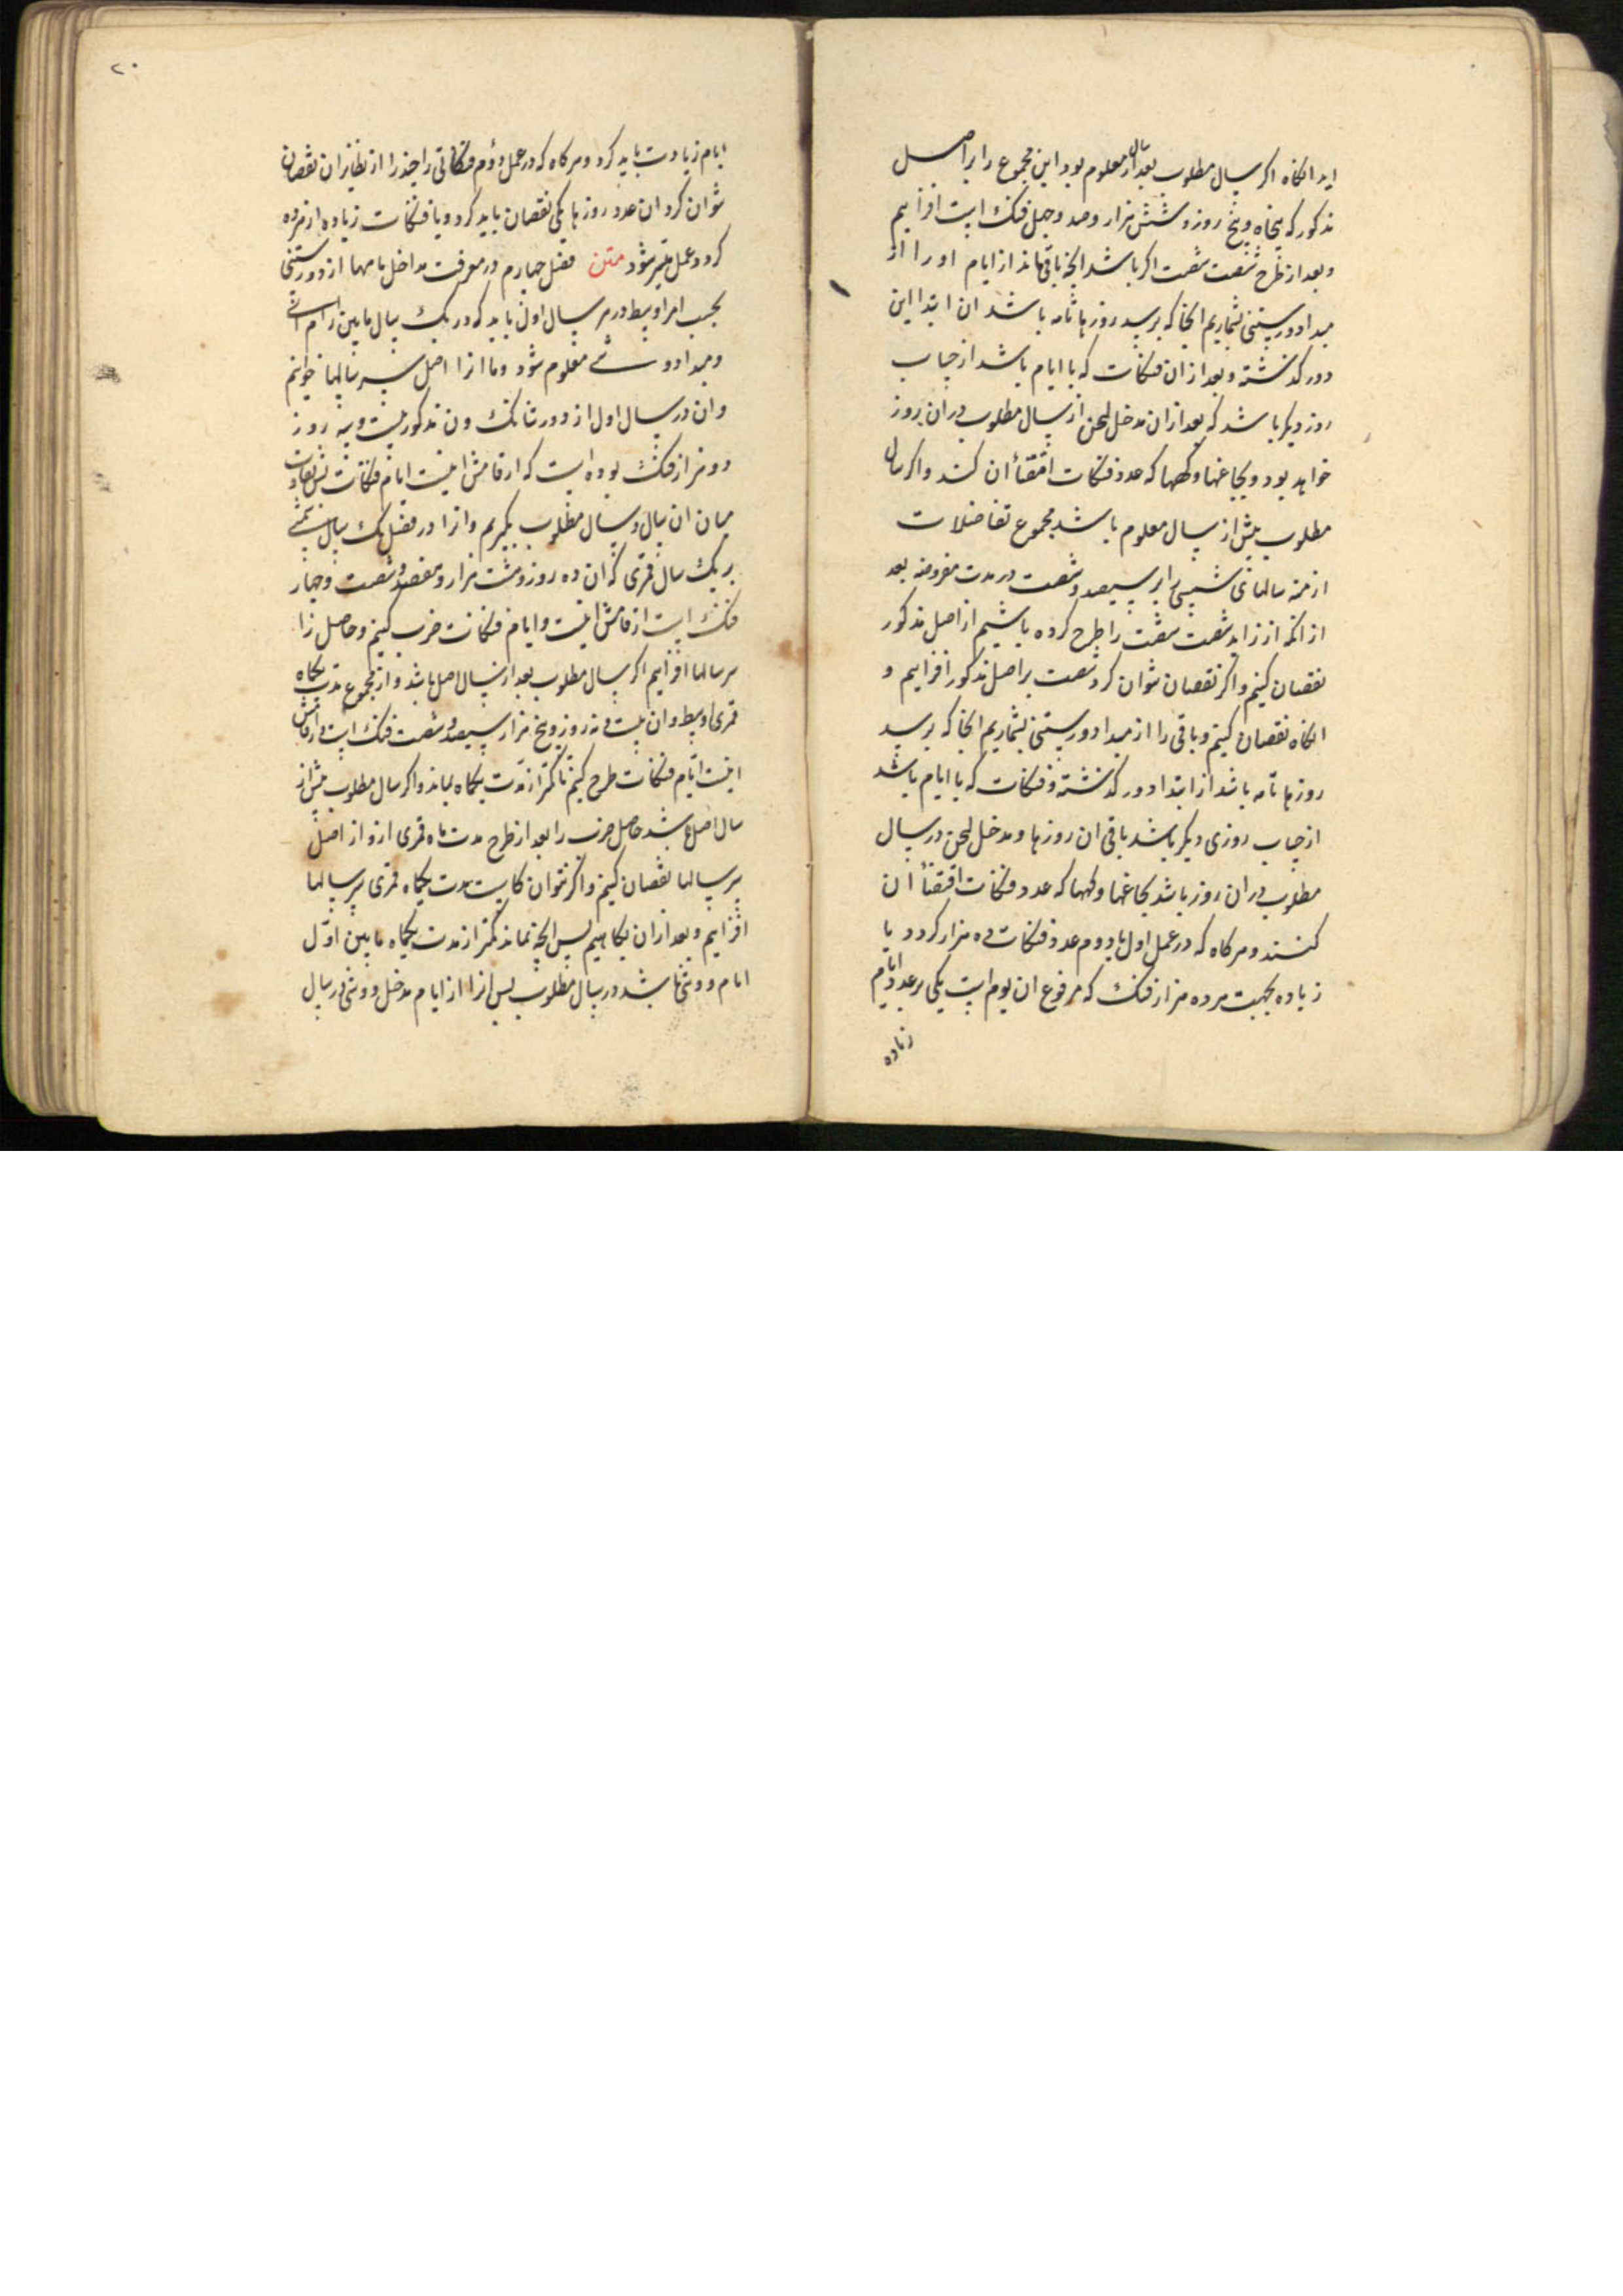 اید انکاه اکر سال مطلوب بعد از سال معلوم بود این مجموع را بر اصل
مذکور که پنجاه و پنج روز و شش هزار و صد و چهل فنک است افزاییم
و بعد از طرح شصت شصت اکر باشد انچه باقی ماند از ایام او را از
مبدا دور ستینی بشماریم انجا که برسد روزها تامه باشد ان ابتدا این
دور کذشته و بعد از ان فنکات که با ایام باشد از حساب
روز دیکر باشد که بعد از ان مدخل لیحن از سال مطلوب در ان روز
خواهد بود و بجاغها و کهها که عدد فنکات اقتضاء ان کند و اکر سال
مطلوب پیش از سال معلوم باشد مجموع تفاضلات
ازمنه سالهای شمسی بر سیصد و شصت در مدت مفروضه بعد
از انکه از زاید شصت شصت را طرح کرده باشیم از اصل مذکور
نقصان کنیم و اکر نقصان نتوان کرد شصت بر اصل مذکور افزاییم و
انکاه نقصان کنیم و باقی را از مبدا دور ستینی بشماریم انجا که برسد
روزها تامه باشد از ابتدا دور کذشته و فنکات که با ایام باشد
از حساب روزی دیکر باشد باقی ان روزها و مدخل لیحن در سال
مطلوب در ان روز باشد بجاغها و کهها که عدد فنکات اقتضاء ان
کنند و هرکاه که در عمل اول یا دوم عدد فنکات ده هزار کردد یا
زیاده بجهت هر ده هزار فنک که مرفوع ان یوم است یکی بر عدد ایام
زیاده
۲۰
ایام زیادت باید کرد و هرکاه که در عمل دوم فنکاتی را چند را از نظایر ان نقصان
نتوان کرد ان عدد روزها یکی نقصان باید کرد و با فنکات زیاده از ده
کرد و عمل میسر شود متن فصل چهارم در معرفت مداخل ماهها از دور ستینی
بحسب امر اوسط در هر سال اول باید که در یک سال مابین رام
و مبدا دو معلوم شود و ما انرا اصل سر سالها خوانیم
و ان در سال اول از دور شانک ون مذکور بیست و نه روز
دو هزار فنک بوده است که ارقامش اینست ایام فنکات پس تفاوت
میان ان سال و سال مطلوب بکیریم و انرا در فضل یک سال شمسی
بر یک سال قمری که ان ده روز و هشت هزار و هفصد و شصت و چهار
فنک است ارقامش اینست و ایام فنکات ضرب کنیم و حاصل را
سر سالها افزاییم اکر سال مطلوب بعد از سال اصل باشد و از مجموع مدت یکماه
قمری اوسط و ان بیست و نه روز و پنج هزار و سیصد و شصت فنک است و ارقامش
اینست ایام فنکات طرح کنیم تا کمتر از مدت یکماه بماند و اکر سال مطلوب پیش از
سال اصل باشد حاصل ضرب را بعد از طرح مدت ماه قمری ازو از اصل
سر سالها نقصان کنیم و اکر نتوان کاست مدت یکماه قمری بر سر سالها
افزاییم و بعد از ان بکاهیم پس انچه بماند کمتر از مدت یکماه مابین اول
ایام دوشی باشد در سال مطلوب پس انرا از ایام مدخل دوشی در سال